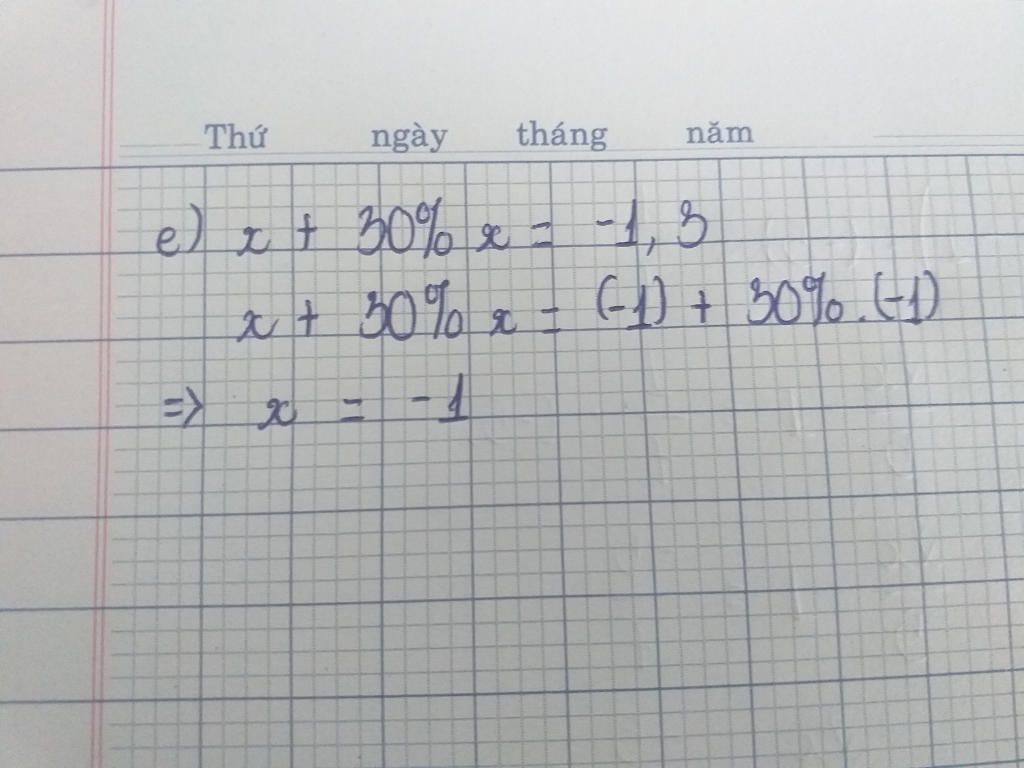 Thứ ngày tháng năm
e) x + 30% x = -1,3
x + 30% x = (-1) + 30%.(-1)
=> x = -1